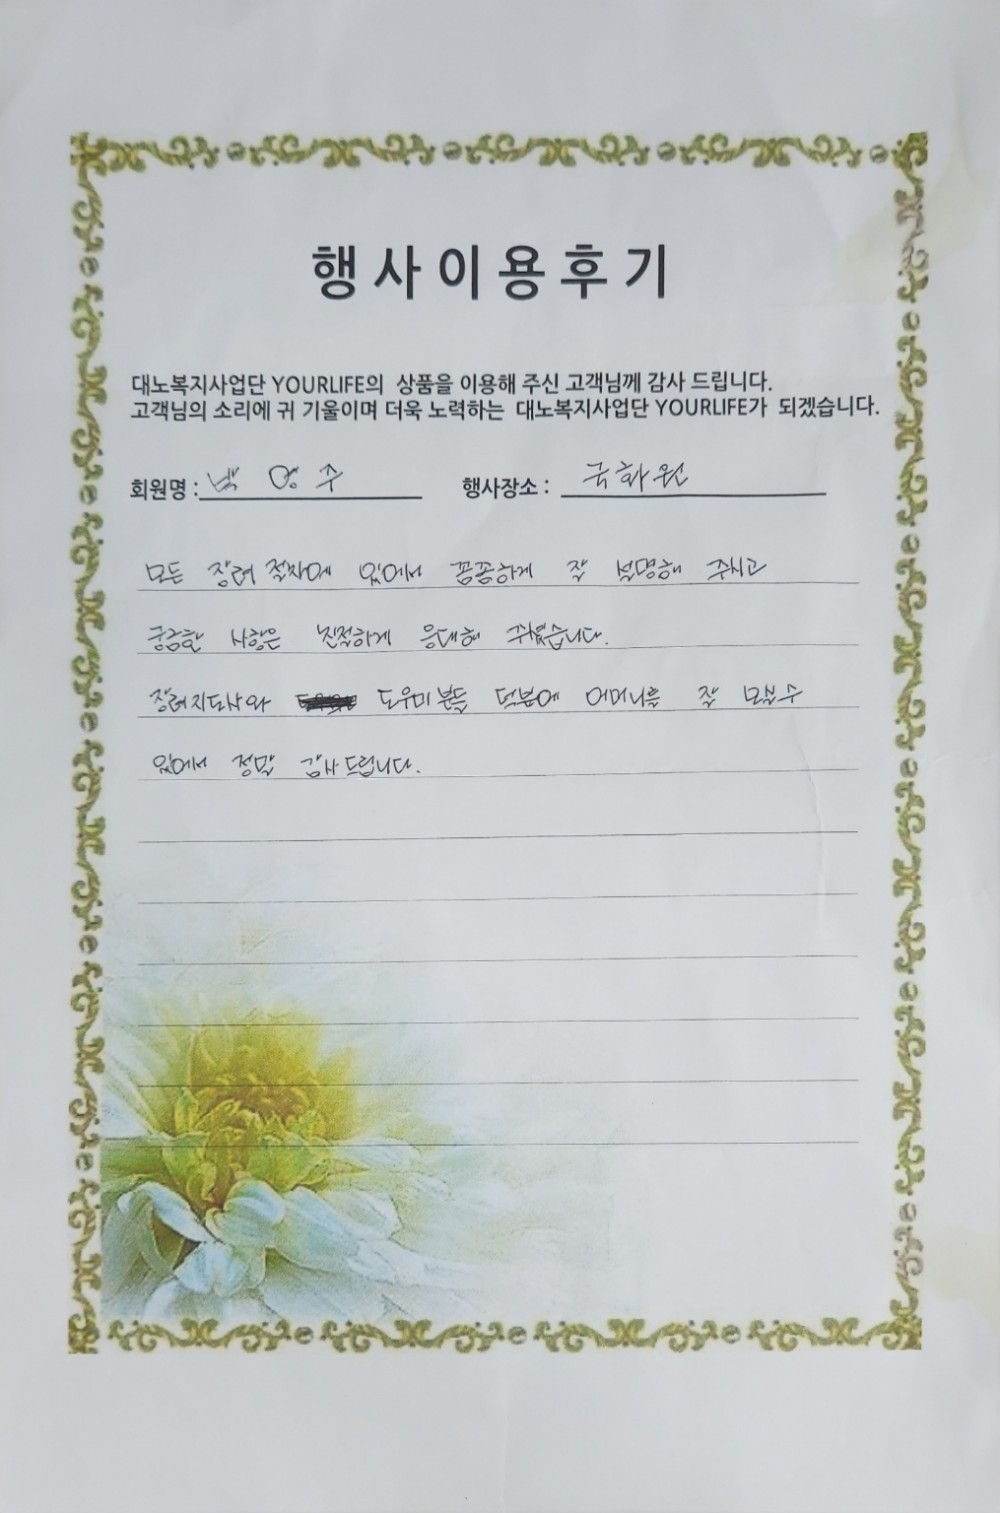 행사이용후기
대노복지사업단 YOURLIFE의 상품을 이용해 주신 고객님께 감사 드립니다.
고객님의 소리에 귀 기울이며 더욱 노력하는 대노복지사업단 YOURLIFE가 되겠습니다.
회원명 : 박영수 행사장소 : 국화원
모든 장례 절차에 있어서 꼼꼼하게 잘 설명해 주시고
궁금한 사항은 친절하게 응대해 주셨습니다.
장례지도사와 도우미분들 덕분에 어머니를 잘 모실수
있어서 정말 감사드립니다.